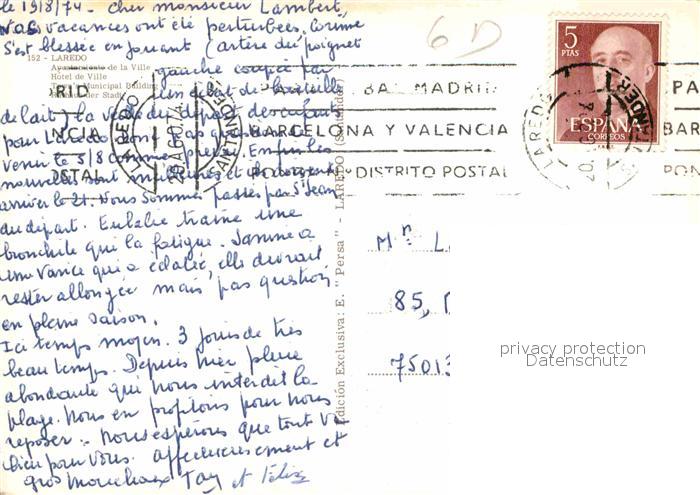 le 19/8/74 - Cher monsieur Lambert,
Nos vacances ont été perturbées. Corinne
s'est blessée en jouant (artère du poignet
gauche coupée par
un éclat de bouteille
de lait) la veille du départ des enfants
pour Laredo
venir le 5/8 comme prévu. Enfin les
nouvelles sont meilleures et ils
arriver le 21. Nous sommes passés par St Jean
du départ. Eulalie traine une
bronchite qui la fatigue. Janine a
une varice qui a éclatée, elle devrait
rester allongée mais pas question
en pleine saison.
Ici temps moyen. 3 jours de très
beau temps. Depuis hier pluie
abondante qui nous interdit la
plage. Nous en profitons pour nous
reposer. Nous espérons que tout va
bien pour vous. Affectueusement et
gros morceaux Tay et Félix
152 - LAREDO
Ayuntamiento de la Ville
Hôtel de Ville
Municipal Building
der Stadt
Edición Exclusiva: E. "Persa" - LAREDO (Santander)
6 D
5
PTAS
ESPAÑA
CORREOS
LAREDO
20 AGO 74
SANTANDER
PARA MADRID
BARCELONA Y VALENCIA
DISTRITO POSTAL
RID
NCIA
OSTAL
PA
BAR
PON
LAREDO
SANTANDER
Mn L
85,
75013
privacy protection
Datenschutz